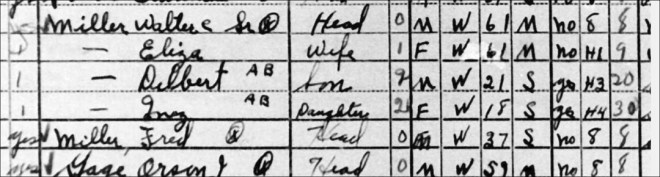 Miller Walter C Sr Head 0 M W 61 M no 8 8
— Eliza Wife 1 F W 61 M no H1 9
1 — Delbert AB Son 2 M W 21 S yes H3 20
1 — Inez AB Daughter 2 F W 18 S yes H4 30
yes Miller, Fred Head 0 M W 37 S no 8 8
yes Gage Orson Head 0 M W 59 M no 8 8